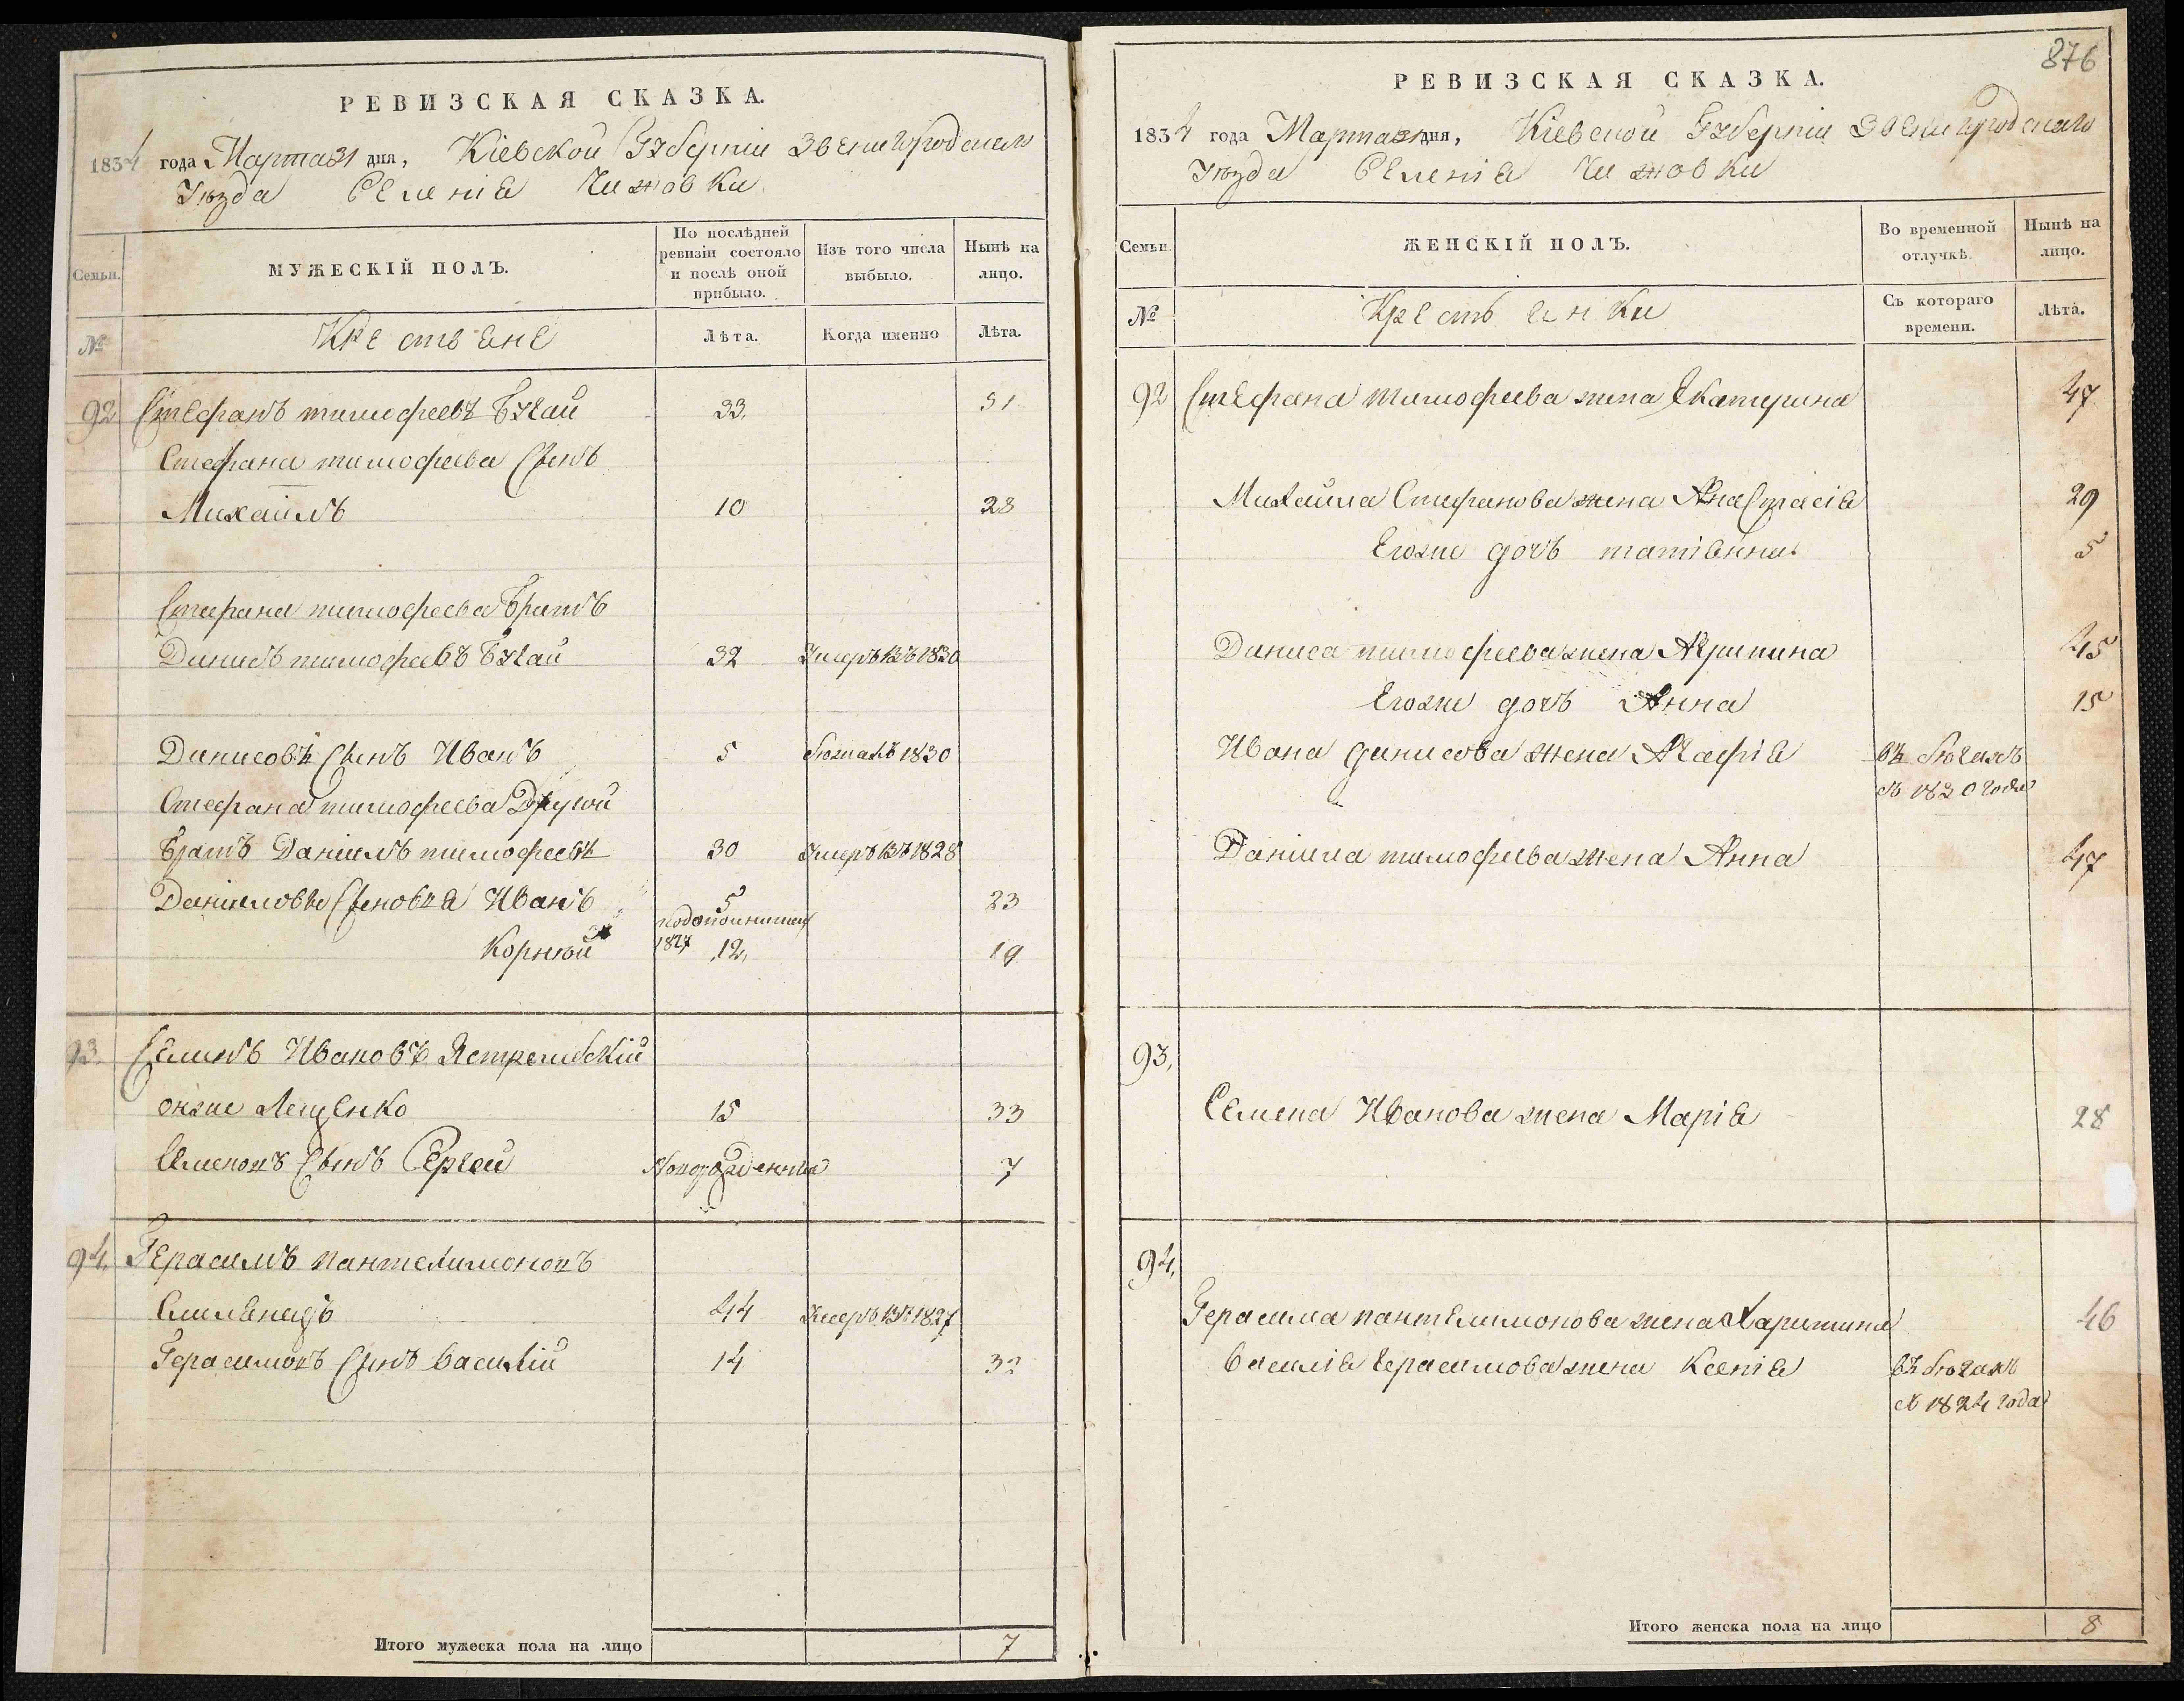 РЕВИЗСКАЯ СКАЗКА.
1834 года Марта 31 дня, Кіевской Губерніи Звенигородскаго
Уѣзда Селенія Чижовки
Семьи.
МУЖЕСКІЙ ПОЛЪ.
По послѣдней ревизіи состояло и послѣ оной прибыло.
Изъ того числа выбыло.
Нынѣ на лицо.
№
Крестьяне
Лѣта.
Когда именно
Лѣта.
92 Стефанъ тимофеевъ Бугай 33. 51
Стефана тимофеева Сынъ
Михаилъ 10 28
Стефана тимофеева Братъ
Данисъ тимофеевъ Бугай 32 Умеръ въ 1830
Данисовъ Сынъ Иванъ 5 бежалъ 1830
Стефана тимофеева Другой
Братъ Даніилъ тимофеевъ 30 Умеръ въ 1828
Даніиловы Сыновья Иванъ 5 23
1827
Корнѣй 12, 19
93. Семенъ Ивановъ Ястрембскій
онже Лещенко 15 33
Семеновъ Сынъ Сергей 7
94. Герасимъ пантелимоновъ
44 Умеръ въ 1827
Герасимовъ Сынъ Василій 14 32
Итого мужеска пола на лицо 7
876
РЕВИЗСКАЯ СКАЗКА.
1834 года Марта 31 дня, Кіевской Губерніи Звенигородскаго
Уѣзда Селенія Чижовки
Семьи.
ЖЕНСКІЙ ПОЛЪ.
Во временной отлучкѣ.
Нынѣ на лицо.
№
Крестьянки
Съ котораго времени.
Лѣта.
92 Стефана тимофеева жена Екатерина 47
Михайла Стефанова жена Анастасія 29
Егоже дочь татіанна 5
Даниса тимофеева жена Агрипина 45
Егоже дочь Анна 15
Ивана данисова жена Агафія въ бѣгахъ
съ 1830 года
Даніила тимофеева жена Анна 47
93,
Семена Иванова жена Марія 28
94,
Герасима пантелимонова жена Харитина 46
Василія Герасимова жена Ксенія въ бѣгахъ
съ 1824 года
Итого женска пола на лицо 8